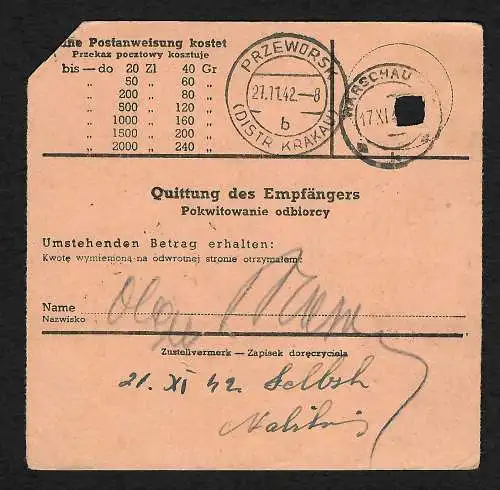 Postanweisung kostet
Przekaz pocztowy kosztuje
bis — do 20 Zl 40 Gr
" 50 " 60 "
" 200 " 80 "
" 500 " 120 "
" 1000 " 160 "
" 1500 " 200 "
" 2000 " 240 "
PRZEWORSK
21.11.42.-8
b
(DISTR. KRAKAU)
WARSCHAU
17.XI
Quittung des Empfängers
Pokwitowanie odbiorcy
Umstehenden Betrag erhalten:
Kwotę wymienioną na odwrotnej stronie otrzymałem:
Name
Nazwisko
Zustellvermerk — Zapisek doręczyciela
21. XI 42. Selbsh